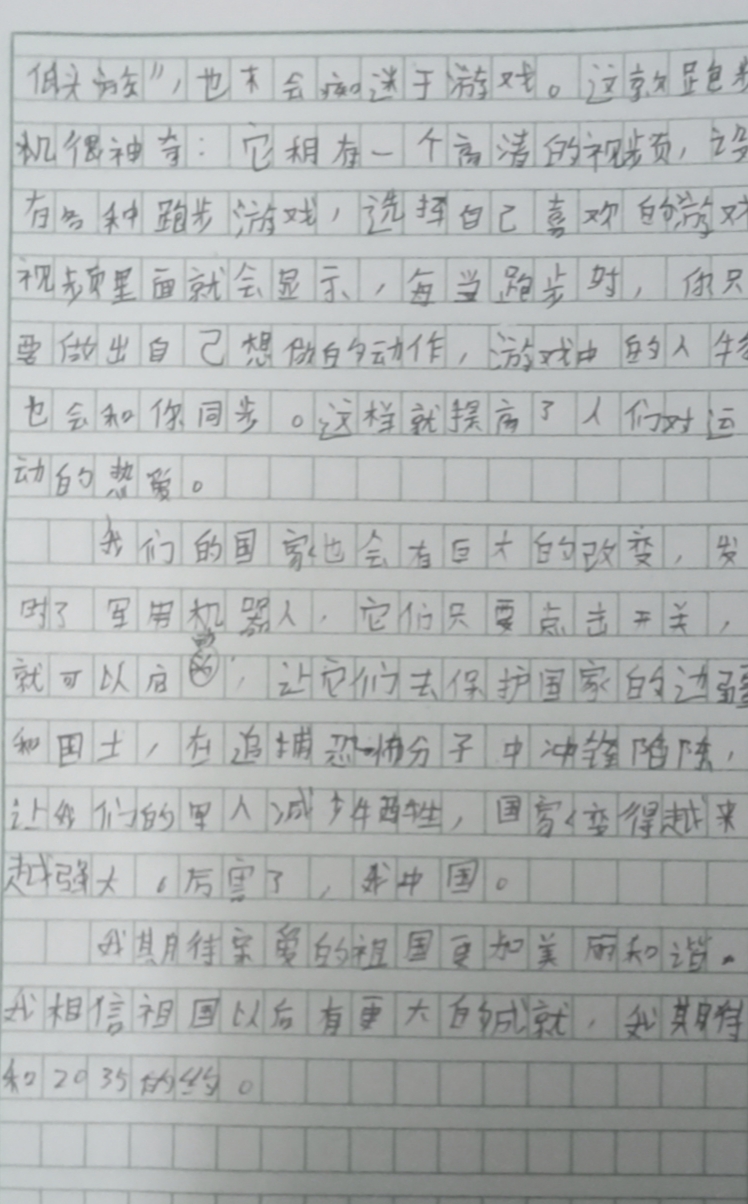 低头族”，也不会痴迷于游戏。这款跑步
机很神奇：它相有一个高清的视步页，设
有各种跑步游戏，选择自己喜欢的游戏
视步页里面就会显示，每当跑步时，你只
要做出自己想做的动作，游戏中的人物
也会和你同步。这样就提高了人们对运
动的热爱。
我们的国家也会有巨大的改变，发
明了军用机器人，它们只要点击开关，
就可以启动，让它们去保护国家的边疆
和国土，在追捕恐怖分子中冲锋陷阵，
让我们的军人减少牺牲，国家变得越来
越强大。厉害了，我中国。
我期待亲爱的祖国更加美丽和谐。
我相信祖国以后有更大的成就，我期待
和2035的约。